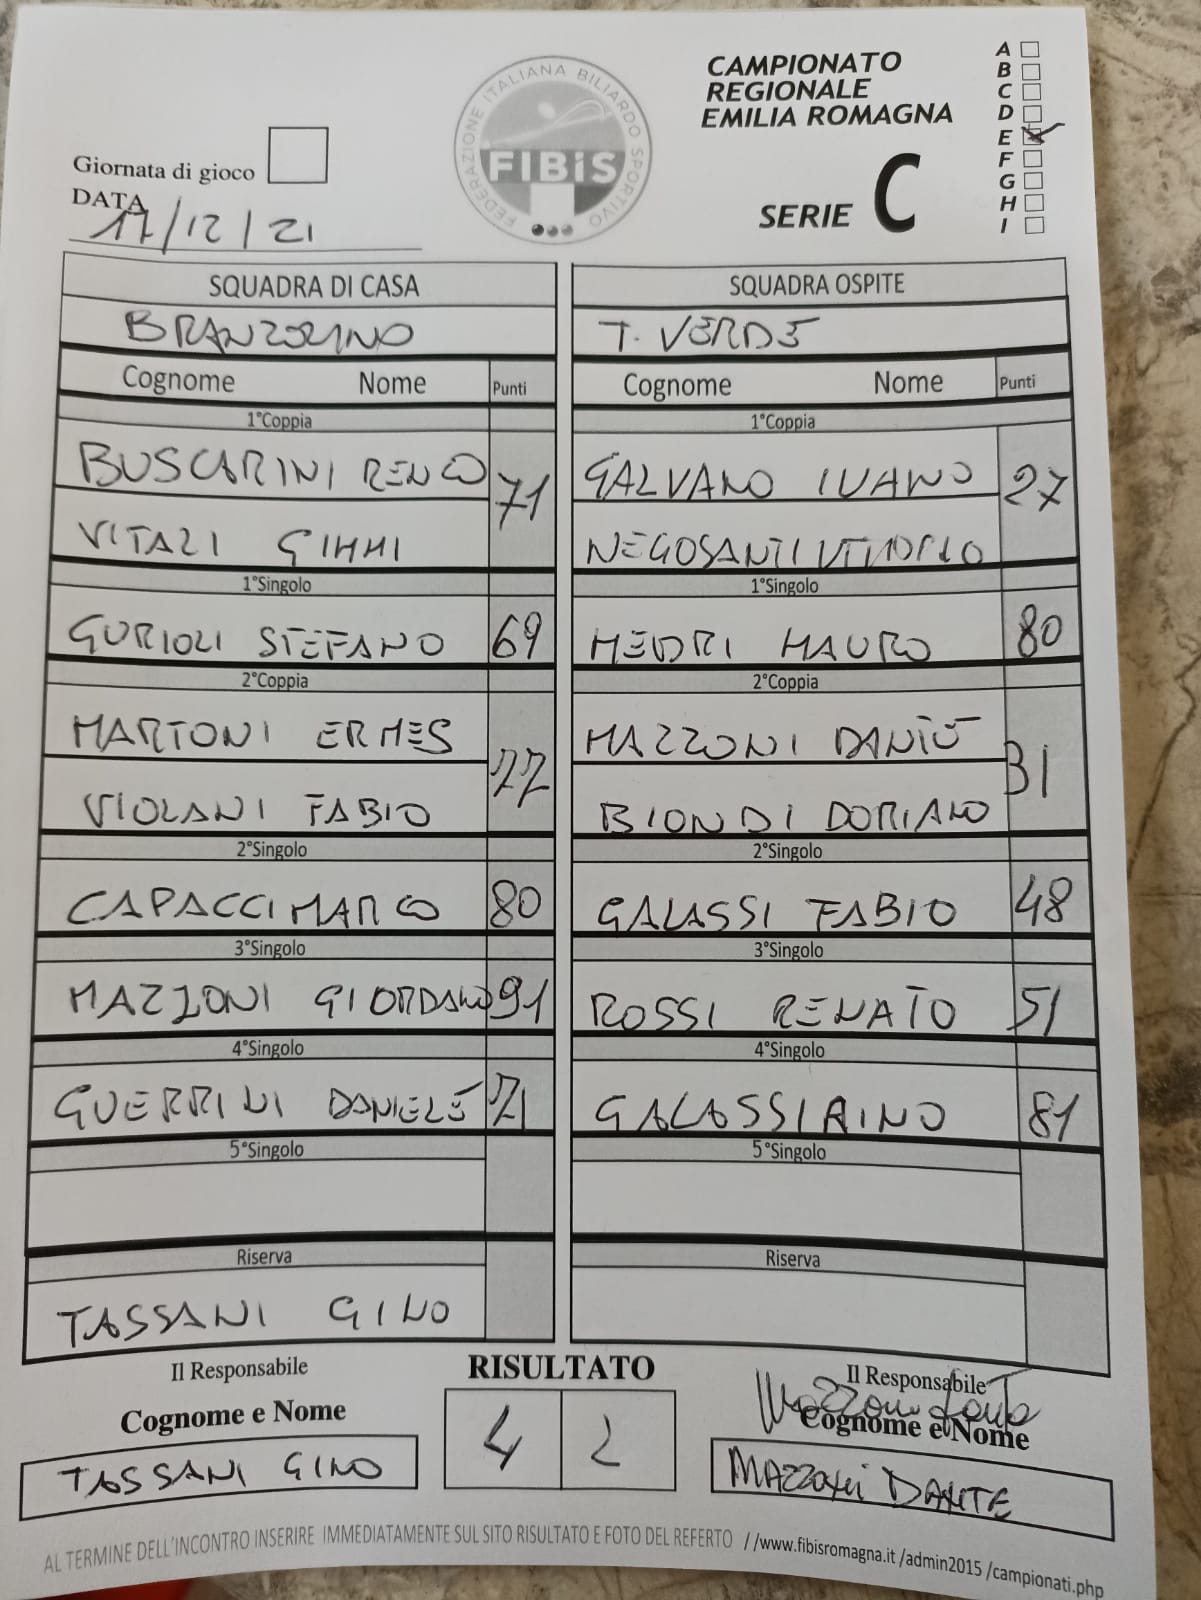 CAMPIONATO
REGIONALE
EMILIA ROMAGNA
SERIE C
A
B
C
D
E
F
G
H
I
FEDERAZIONE ITALIANA BILIARDO SPORTIVO
FIBiS
Giornata di gioco
DATA
17/12/21
SQUADRA DI CASA
SQUADRA OSPITE
BRANZOLINO
T. VERDE
Cognome Nome Punti
Cognome Nome Punti
1°Coppia
1°Coppia
BUSCARINI RENCO 71
GALVANO IVANO 27
VITALI GIMMI
NEGOSANTI VITTORIO
1°Singolo
1°Singolo
GURIOLI STEFANO 69
MEDRI MAURO 80
2°Coppia
2°Coppia
MARTONI ERMES 77
MAZZONI DANTE 31
VIOLANI FABIO
BIONDI DORIANO
2°Singolo
2°Singolo
CAPACCI MARCO 80
GALASSI FABIO 48
3°Singolo
3°Singolo
MAZZONI GIORDANO 91
ROSSI RENATO 51
4°Singolo
4°Singolo
GUERRINI DANIELE 71
GALASSI RINO 81
5°Singolo
5°Singolo
Riserva
Riserva
TASSANI GINO
Il Responsabile
RISULTATO
Il Responsabile
Cognome e Nome
4 2
Mazzoni Dante
Cognome e Nome
TASSANI GINO
MAZZONI DANTE
AL TERMINE DELL'INCONTRO INSERIRE IMMEDIATAMENTE SUL SITO RISULTATO E FOTO DEL REFERTO //www.fibisromagna.it /admin2015 /campionati.php